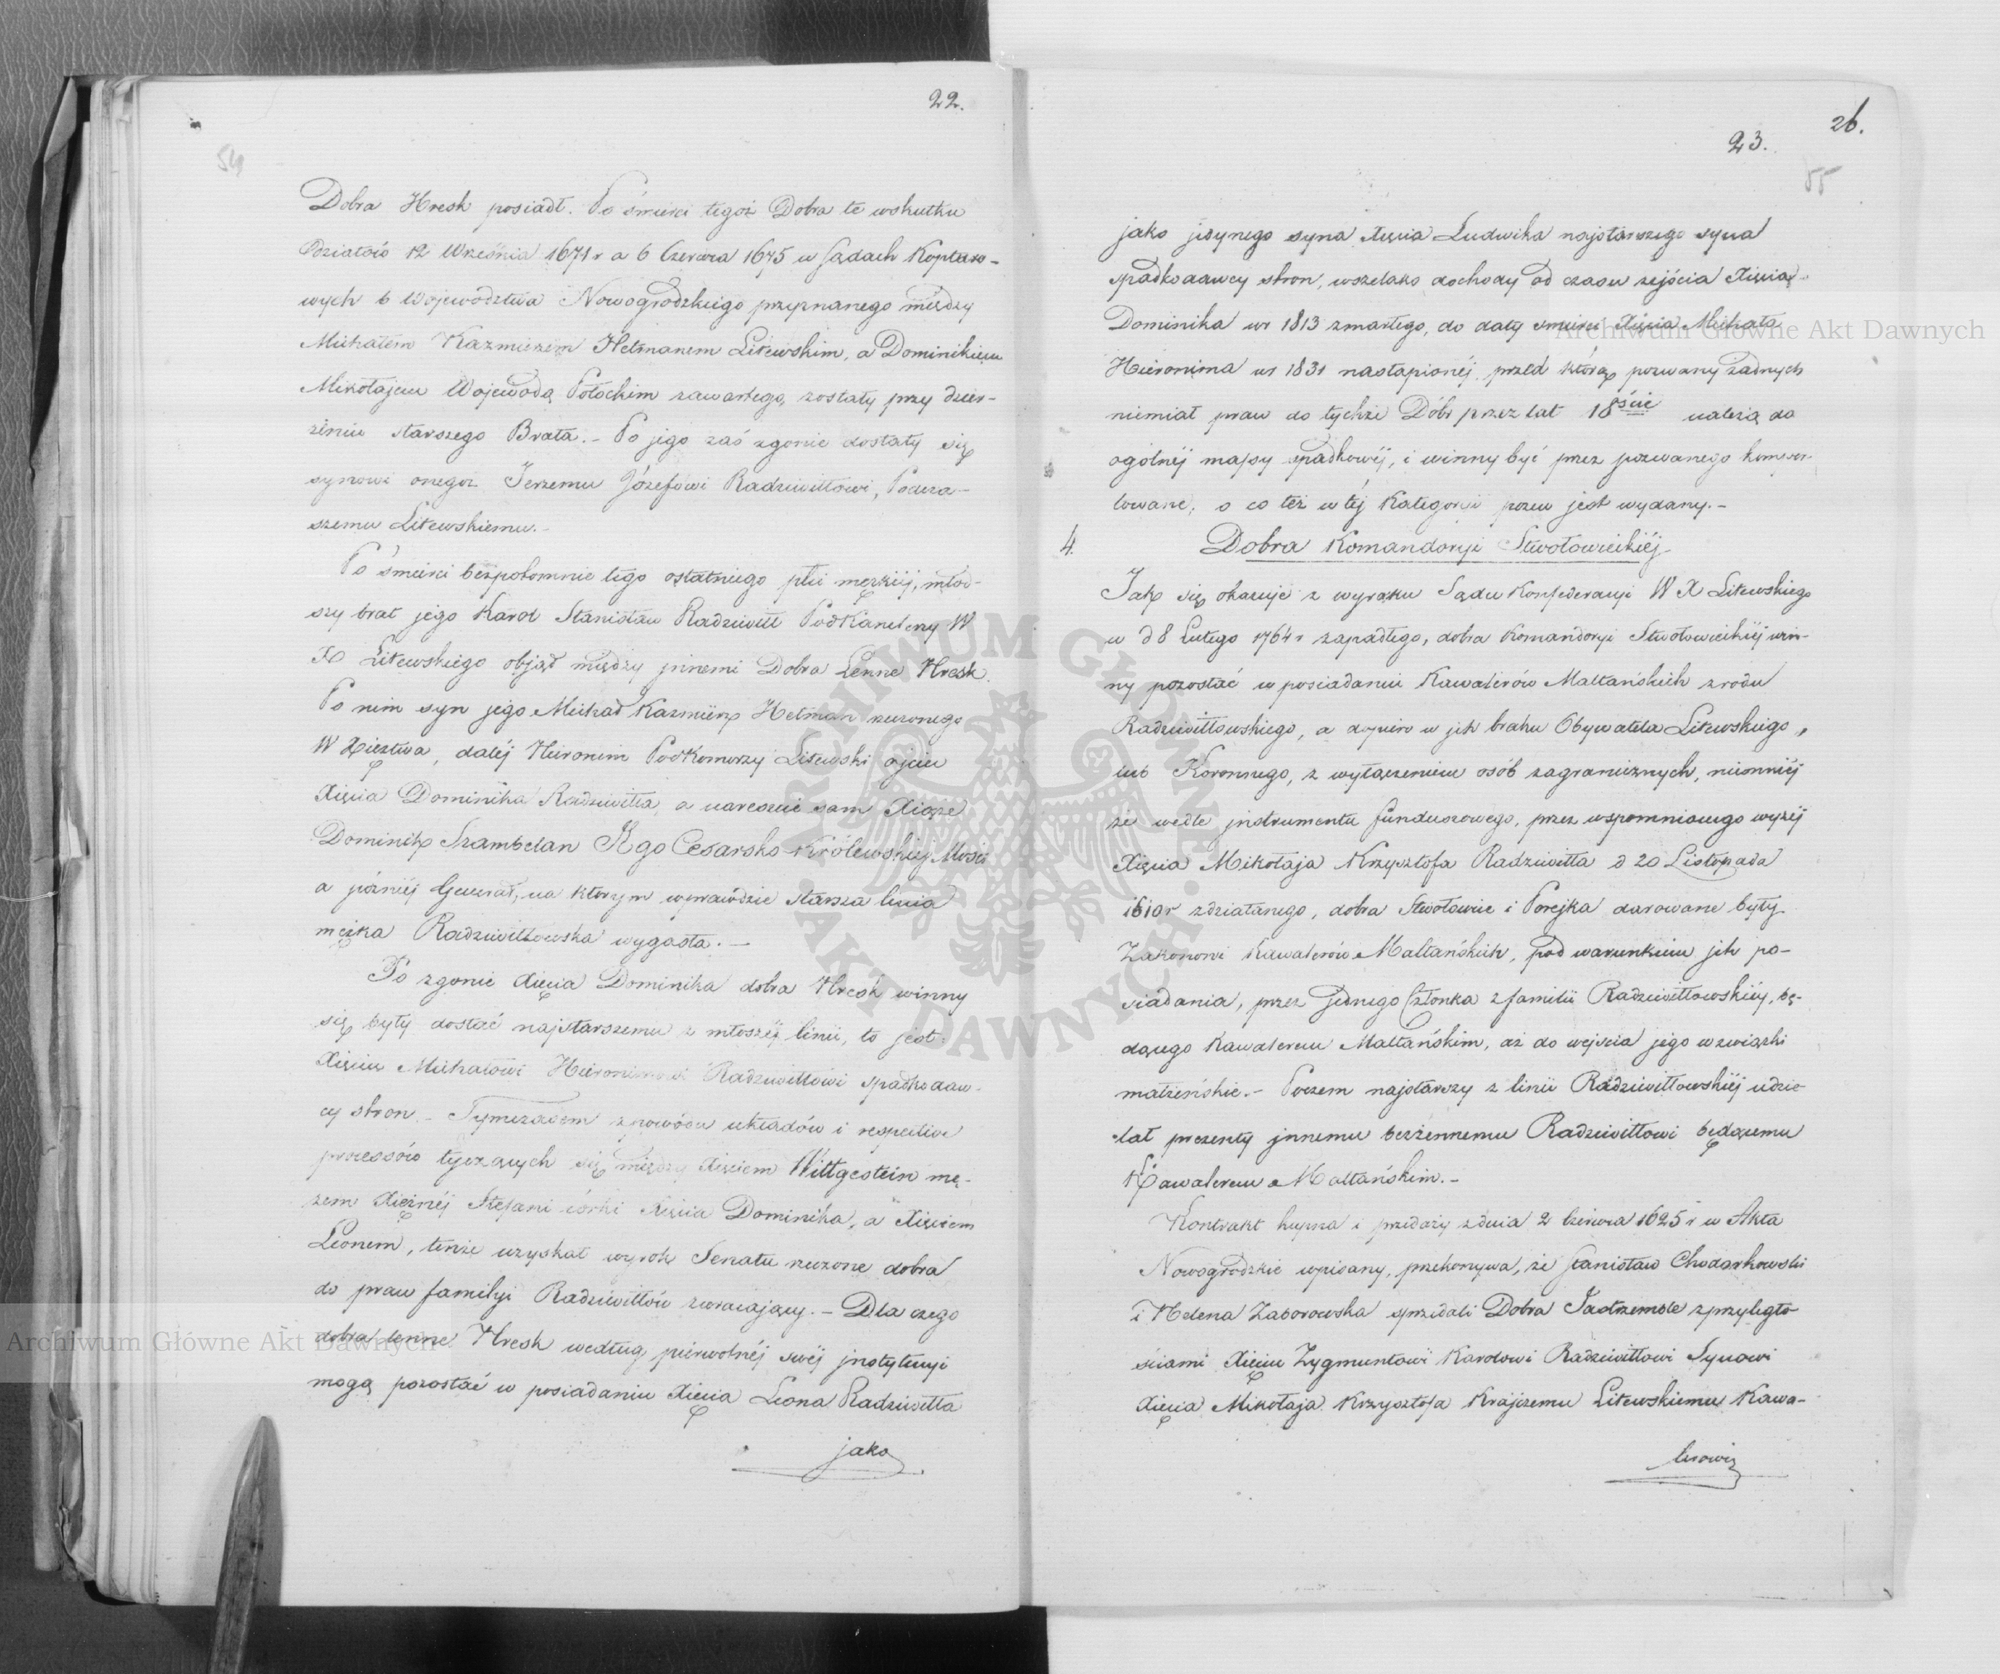 22.
54
Dobra Hresk posiadł. Po śmierci tegoż Dobra te wskutku
Działów 12 Września 1671 r a 6 Czerwca 1675 w Sądach Kopturo-
wych b Województwa Nowogrodzkiego przyznanego między
Michałem Kazmierzem Hetmanem Litewskim, a Dominikiem
Mikołajem Wojewodą Połockim zawartego, zostały przy dzier-
żeniu starszego Brata.- Po jego zaś zgonie dostały się
synowi onegoż Jerzemu Józefowi Radziwiłłowi, Podcza-
szemu Litewskiemu.-
Po śmierci bezpotomnie tego ostatniego płci męzkiéj, młod-
szy brat jego Karol Stanisław Radziwiłł PodKanclerzy W
X Litewskiego objął między jnnemi Dobra Lenne Hresk.
Po nim syn jego Michał Kazmierz Hetman rzeczonego
W Xięztwa, daléj Hieronim Podkomorzy Litewski ojciec
Xięcia Dominika Radziwiłła, a nareszcie sam Xiąże
Dominik Szambelan Jego Cesarsko Królewskiej Mości
a późniéj Generał, na którym wprawdzie starsza linia
męzka Radziwiłłowska wygasła.-
Po zgonie Xięcia Dominika dobra Hresk winny
się były dostać najstarszemu z młoszéj linii, to jest:
Xięciu Michałowi Hieronimowi Radziwiłłowi spadkodaw-
cy stron.- Tymczasem z powodu układów i respective
processów tyczących się między Xięciem Wittgestein mę-
żem Xiężnéj Stefani córki Xięcia Dominika, a Xięciem
Leonem, tenże uzyskał wyrok Senatu rzeczone dobra
do praw familji Radziwiłłów zwracający.- Dla czego
dobra lenne Hresk według pierwotnéj swéj jnstytucyi
mogą pozostać w posiadaniu Xięcia Leona Radziwiłła
jako
26.
23.
55
jako jedynego syna Xięcia Ludwika najstarszego syna
spadkodawcy stron, wszelako dochody od czasu zejścia Xięcia
Dominika w r 1813 zmarłego, do daty śmierci Xięcia Michała
Hieronima w r 1831 nastąpionéj, przed którą pozwany żadnych
niemiał praw do tychże Dóbr przez lat 18ście należą do
ogólnéj massy spadkowéj, i winny być przez pozwanego konser-
towane, o co też w téj Kategoryi pozew jest wydany.-
4. Dobra Komandoryi Stwołowickiéj
Jak się okazuje z wyroku Sądu Konfederacyi W X Litewskiego
w d 8 Lutego 1764 r zapadłego, dobra Komandoryi Stwołowickiéj win-
ny pozostać w posiadaniu Kawalerów Maltańskich z rodu
Radziwiłłowskiego, a dopiero w jch braku Obywatela Litewskiego,
lub Koronnego, z wyłączeniem osób zagranicznych, niemniéj
że wedle jnstrumentu funduszowego, przez wspomnionego wyżéj
Xięcia Mikołaja Krzysztofa Radziwiłła d 20 Listopada
1610 r zdziałanego, dobra Stwołowicze i Porejka darowane były
Zakonowi Kawalerów Maltańskich, pod warunkiem jch po-
siadania, przez jednego Członka z familii Radziwiłłowskiéy, bę-
dącego Kawalerem Maltańskim, aż do wejscia jego w związki
małżeńskie.- Poczem najstarszy z linii Radziwiłłowskiéj udzie-
lał prezenty jnnemu bezżennemu Radziwiłłowi będącemu
Kawalerem Maltańskim.-
Kontrakt kupna i przedaży z dnia 2 Czerwca 1625 r w Akta
Nowogrodzkie wpisany, przekonywa, że Stanisław Chodarkowski
i Helena Zaborowska sprzedali Dobra Jastrzemble z przyległo-
ściami Xięciu Zygmuntowi Karolowi Radziwiłłowi Synowi
Xięcia Mikołaja Krzysztofa Krajczemu Litewskiemu Kawa-
lerowi
Archiwum Główne Akt Dawnych
Archiwum Główne Akt Dawnych
ARCHIWUM GŁÓWNE · AKT DAWNYCH ·